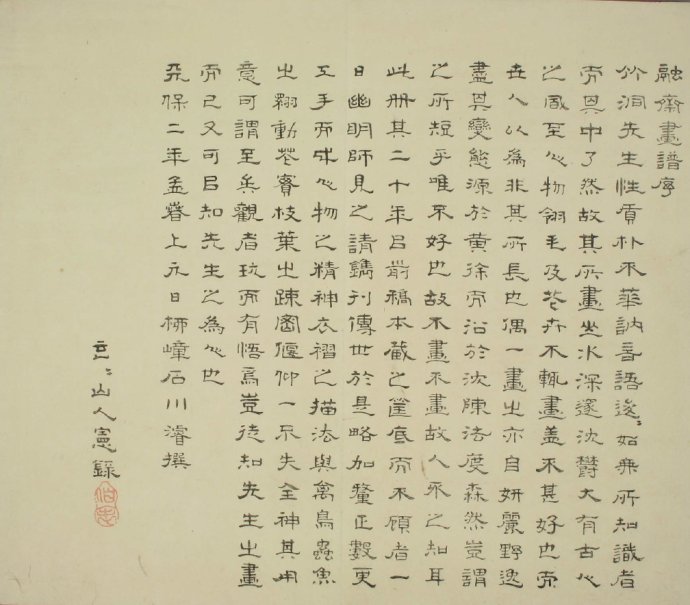 融齋畫譜序
竹洞先生性質朴不華訥言語逡〻如無所知識者
而其中了然故其所畫山水深邃沈鬱大有古人
之風至人物翎毛及花卉不輒畫蓋不甚好也而
世人以為非其所長也偶一畫之亦自妍麗野逸
盡其變態源於黄徐而沿於沈陳法度森然豈謂
之所短乎唯不好也故不畫不畫故人不之知耳
此册其二十年以前稿本蔵之筐底而不顧者一
日幽明師見之請鐫刊傳世於是略加釐正數更
工手而成人物之精神衣褶之描法與禽鳥蟲魚
之翔動花枝葉之疎密偃仰一不失全神其用
意可謂至矣觀者玩而有悟焉豈徒知先生之畫
而已又可以知先生之為人也
天保二年孟春上元日柳嶂石川濬撰
玄〻山人憲録